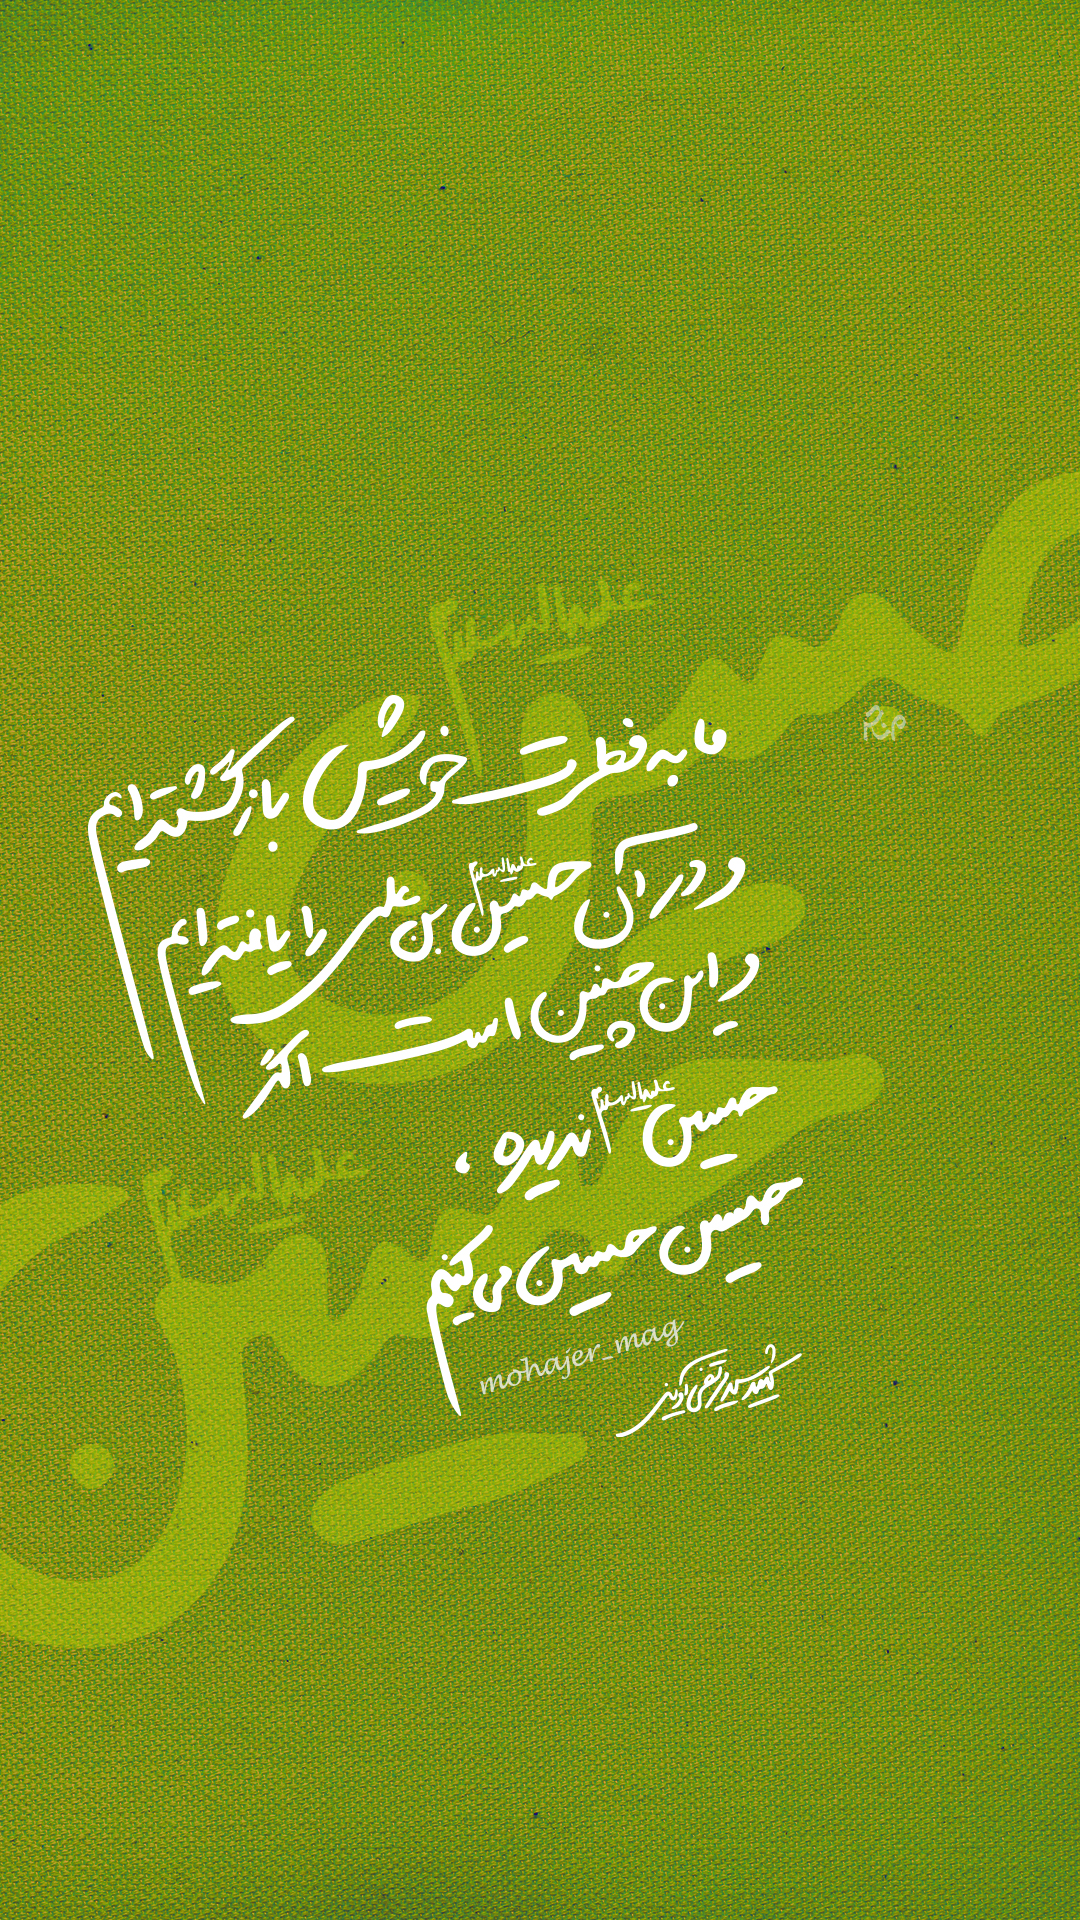 علیه‌السلام
حسین
ما به فطرت خویش بازگشته‌ایم
و در آن حسین علیه‌السلام بن علی را یافته‌ایم
و این چنین است اگر
حسین علیه‌السلام ندیده ،
حسین حسین می‌کنیم
علیه‌السلام
حسین
mohajer_mag
شهید سید مرتضی آوینی